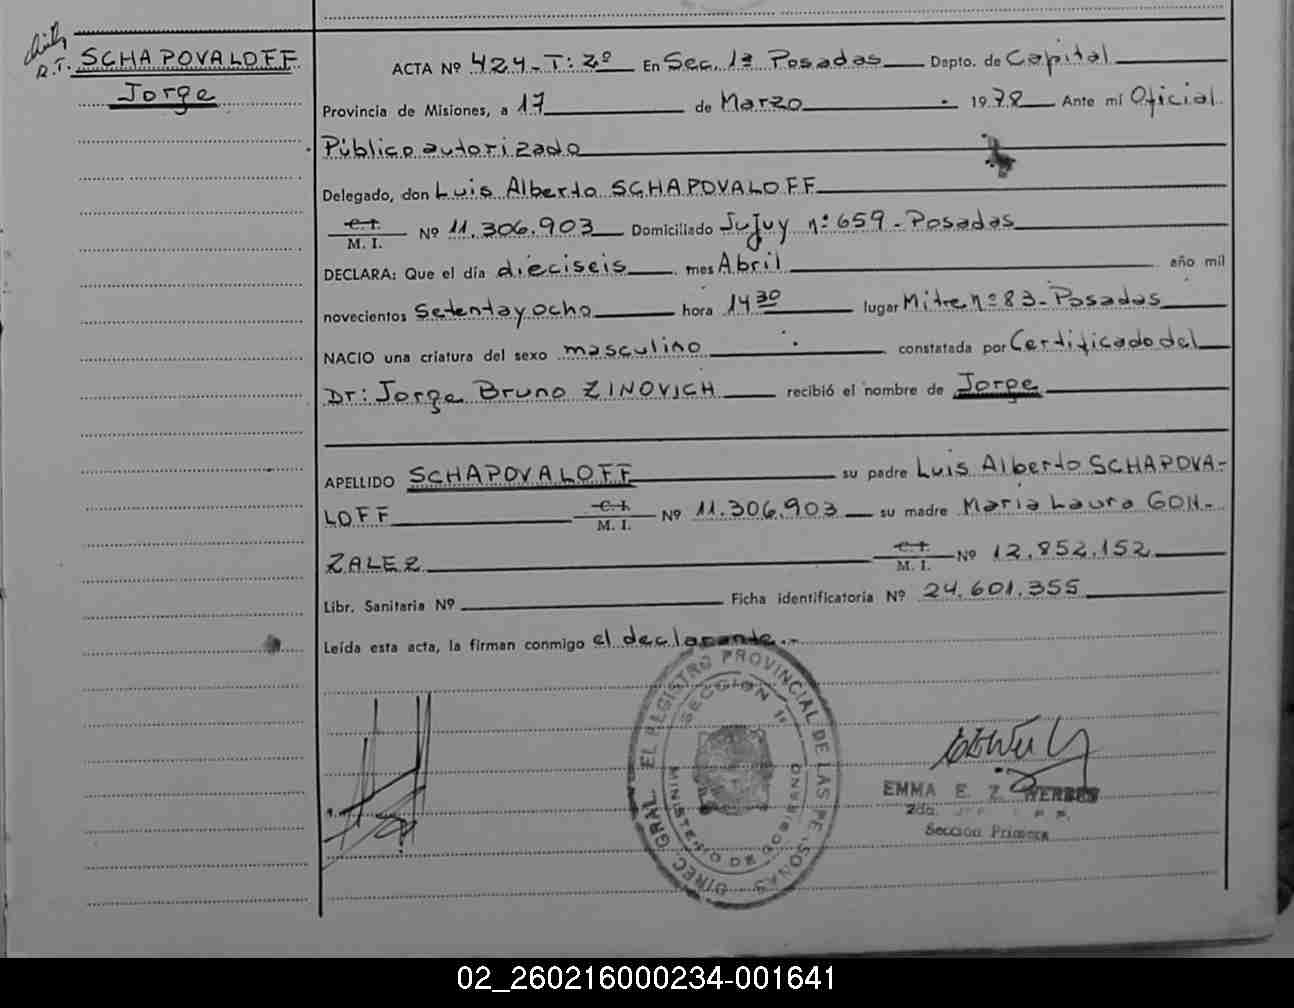 R.T. SCHAPOVALOFF
Jorge
ACTA Nº 424 - T: 2º En Sec. 1ª Posadas Depto. de Capital
Provincia de Misiones, a 17 de Marzo 1978 Ante mí Oficial
Público autorizado
Delegado, don Luis Alberto SCHAPOVALOFF
C.I. M. I. Nº 11.306.903 Domiciliado Jujuy nº 659 - Posadas
DECLARA: Que el día dieciseis mes Abril año mil
novecientos Setenta y ocho hora 14 30 lugar Mitre nº 83 - Posadas
NACIO una criatura del sexo masculino constatada por Certificado del
Dr: Jorge Bruno ZINOVICH recibió el nombre de Jorge
APELLIDO SCHAPOVALOFF su padre Luis Alberto SCHAPOVA-
LOFF C.I. M. I. Nº 11.306.903 su madre Maria Laura GON-
ZALEZ C.I. M. I. Nº 12.852.152
Libr. Sanitaria Nº Ficha identificatoria Nº 24.601.355
Leída esta acta, la firman conmigo el declarante.-
DIREC. GRAL. EL REGISTRO PROVINCIAL DE LAS PERSONAS
SECCION 1ª
MINISTERIO DE GOBIERNO
EMMA E. Z. WERBES
2da.
Sección Primera
02_260216000234-001641